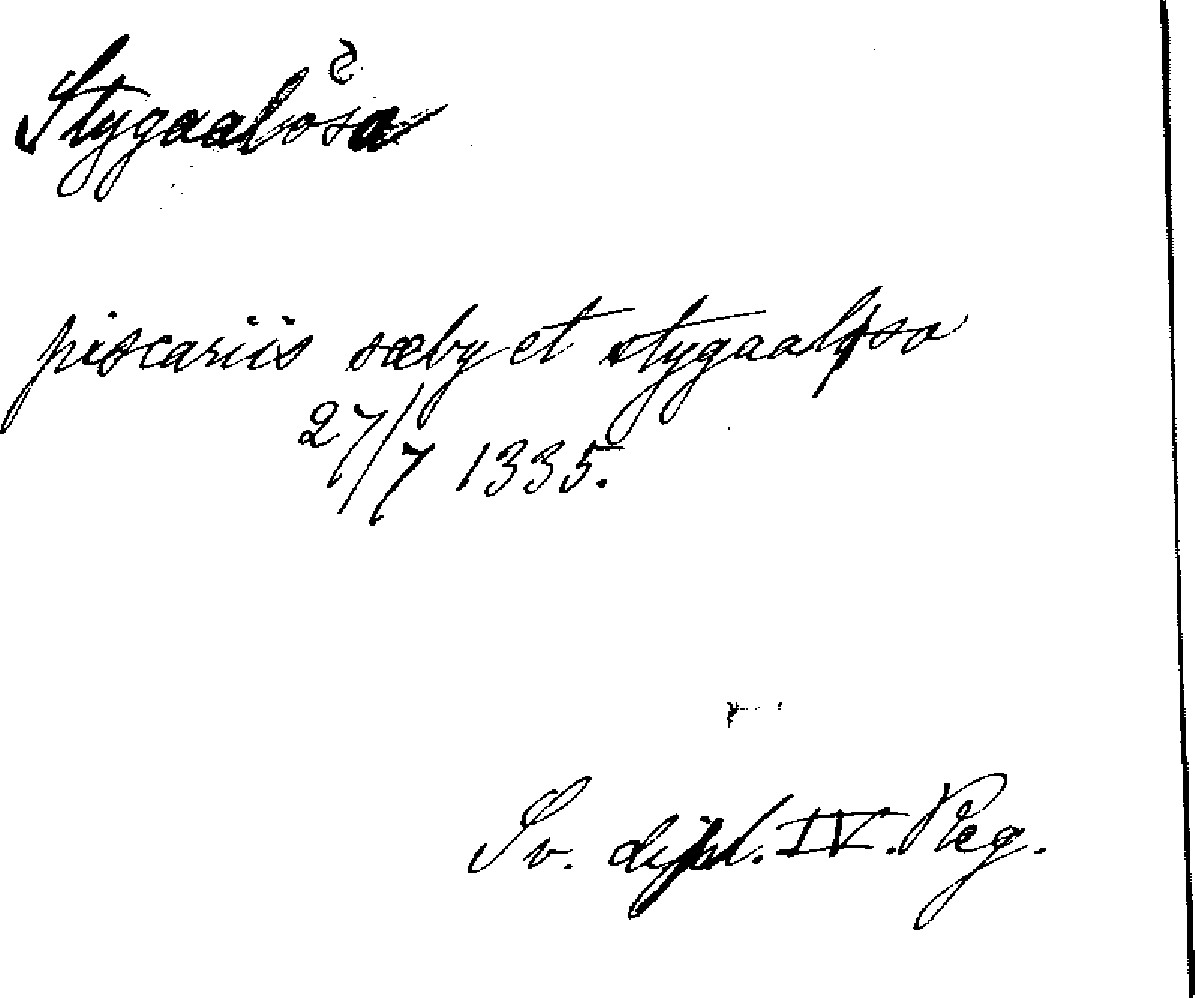 Stygaalösa
piscariis sæby et stygaaløsa
27/7 1335.
Sv. dipl. IV. Reg.